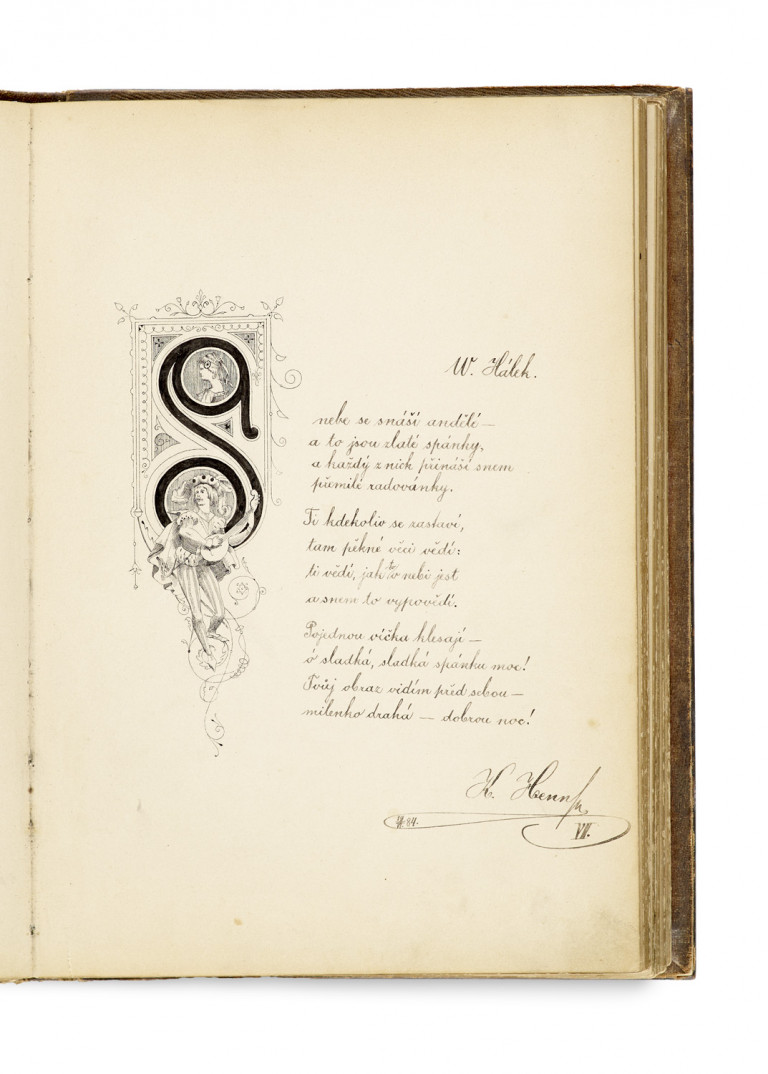 W. Hálek.
S
nebe se snáší andělé —
a to jsou zlaté spánky,
a každý z nich přináší snem
přemilé radovánky.
Ti kdekoliv se zastaví,
tam pěkné věci vědí:
ti vědí, jak to v nebi jest
a snem to vypovědí.
Pojednou víčka klesají —
ó sladká, sladká spánku moc!
Tvůj obraz vidím před sebou —
milenko drahá — dobrou noc!
K.
84.
VII.